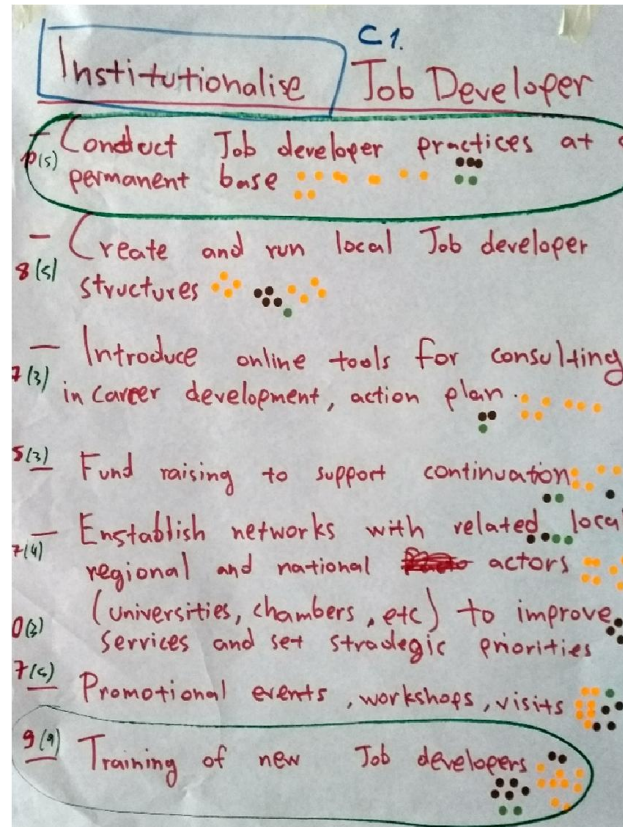 C1.
Institutionalise Job Developer
- Conduct Job developer practices at
(5) permanent base
- Create and run local Job developer
8(5) structures
- Introduce online tools for consulting
7(3) in career development, action plan.
5(3) - Fund raising to support continuation
- Enstablish networks with related local
7(4) regional and national actors
(universities, chambers, etc) to improve
0(3) services and set stradegic priorities
7(5) - Promotional events, workshops, visits
9(9) - Training of new Job developers